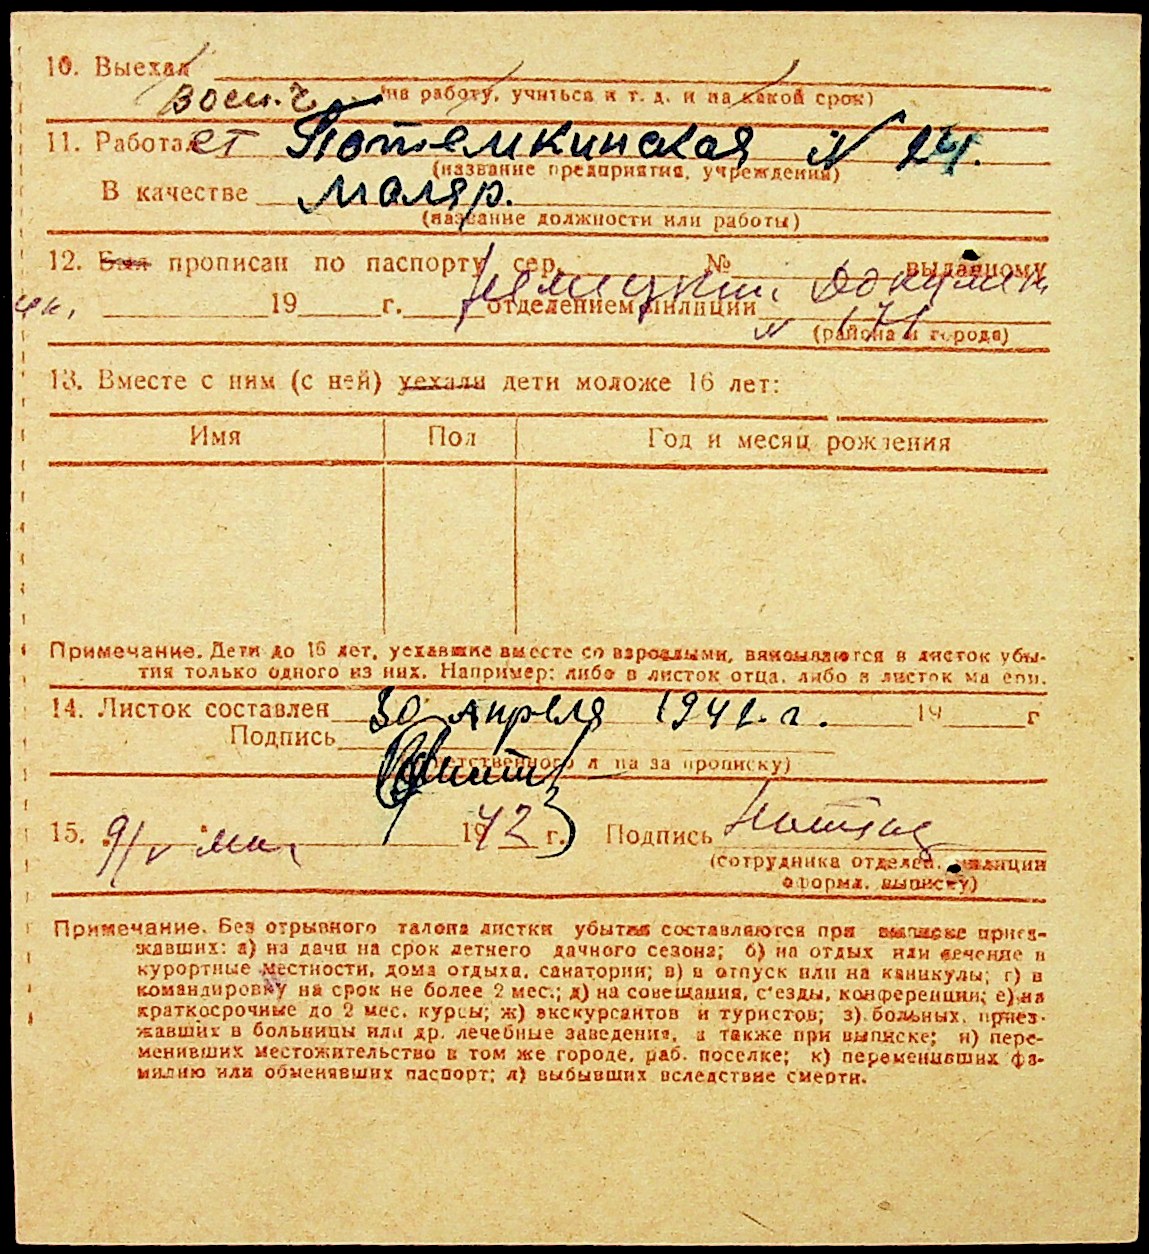 10. Выехал
(на работу, учиться и т. д. и на какой срок)
воен. ч.
11. Работает Потемкинская N 24.
(название предприятия, учреждения)
В качестве маляр.
(название должности или работы)
12. Был прописан по паспорту сер. № выданному
немецкий документ
19 г. отделением милиции
N 171
(района и города)
13. Вместе с ним (с ней) уехали дети моложе 16 лет:
Имя Пол Год и месяц рождения
Примечание. Дети до 16 лет, уехавшие вместе со взрослыми, вписываются в листок убы-
тия только одного из них. Например: либо в листок отца, либо в листок матери.
14. Листок составлен 30 апреля 1942 г. 19 г
Подпись
(ответственного лица за прописку)
15. 9/V 1942 г. Подпись
(сотрудника отделен. милиции
оформл. выписку)
Примечание. Без отрывного талона листки убытия составляются при выписке приез-
жавших: а) на дачи на срок летнего дачного сезона; б) на отдых или лечение в
курортные местности, дома отдыха, санатории; в) в отпуск или на каникулы; г) в
командировку на срок не более 2 мес.; д) на совещания, с'езды, конференции; е) на
краткосрочные до 2 мес. курсы; ж) экскурсантов и туристов; з) больных, приез-
жавших в больницы или др. лечебные заведения, а также при выписке; и) пере-
менивших местожительство в том же городе, раб. поселке; к) переменивших фа-
милию или обменявших паспорт; л) выбывших вследствие смерти.